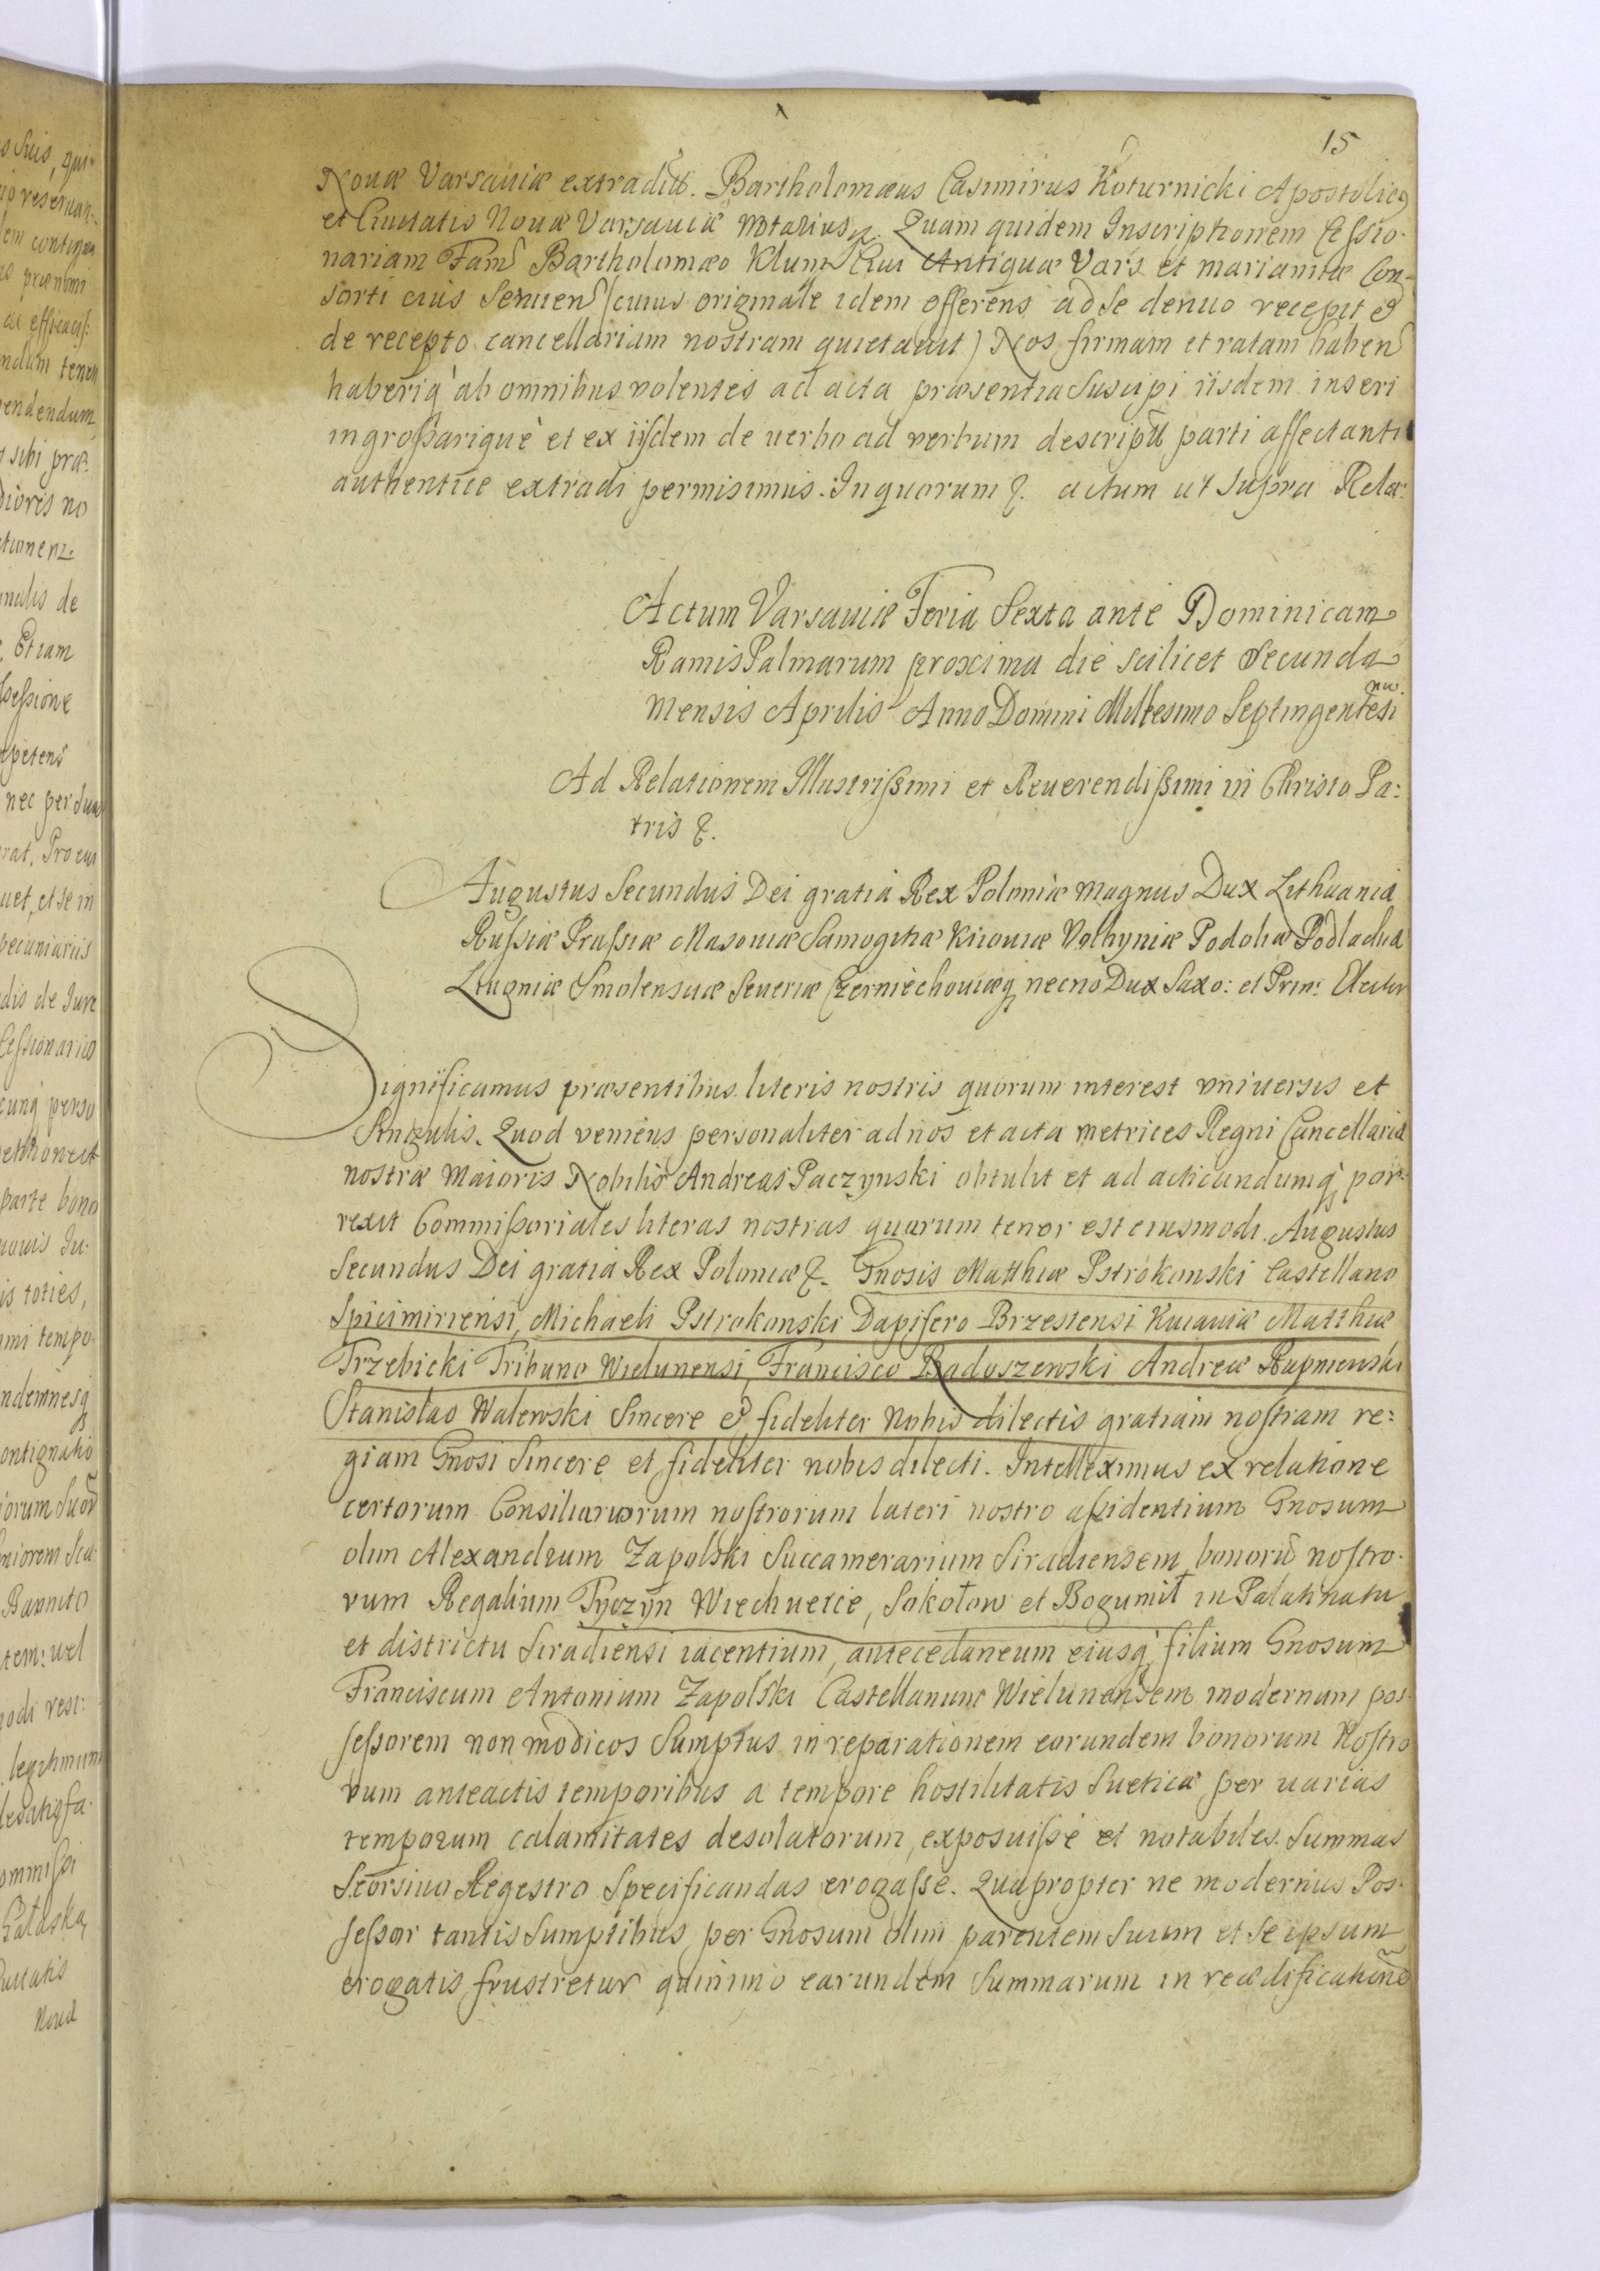 15
Nouæ Varsauiæ extradidit. Bartholomæus Casimirus Koturnicki Apostolicus
et Ciuitatis Nouæ Varsauiæ Notarius Quam quidem Inscriptionem Cessio-
nariam Fam Bartholomæo Klum Ciui Antiquæ Vars et mariannæ Con-
sorti eius seruien (cuius originale idem offerens ad se denuo recepit et
de recepto cancellariam nostram quietauit) Nos firmam et ratam haben
haberiq ab omnibus volentes ad acta præsentia Suscipi iisdem inseri
ingroßariquè et ex iisdem de uerbo ad verbum descriptū parti affectanti
authentice extradi permisimus. In quorum &. actum ut supra Rela:
Actum Varsauiæ Feria Sexta ante Dominicam
Ramis Palmarum proxima die scilicet Secunda
Mensis Aprilis Anno Domini Millesimo Septingentesi
mo.
Ad Relationem Illustrißimi et Reuerendißimi in Christo Pa:
tris &.
Augustus Secundus Dei gratia Rex Poloniæ Magnus Dux Lithuaniæ
Rußiæ Prußiæ Masouiæ Samogitiæ Kiiouiæ Volhyniæ Podoliæ Podlachiæ
Liuoniæ Smolensciæ Seueriæ Czerniechouiæq necno Dux Saxo: et Prin: Elector
Significamus præsentibus literis nostris quorum interest vniuersis et
Singulis. Quod veniens personaliter ad nos et acta metrices Regni Cancellariæ
nostræ Maioris Nobilis Andreas Paczynski obtulit et ad acticandumq por-
rexit Commißoriales literas nostras quarum tenor est eiusmodi. Augustus
Secundus Dei gratia Rex Poloniæ &. Gnosis Matthiæ Pstrokonski Castellano
Spicimiriensi, Michaeli Pstrokonski Dapifero Brzestensi Kuiauiæ Matthiæ
Trzebicki Tribuno Wielunensi, Francisco Raduszewski Andreæ Rupniewski
Stanislao Walewski Sincere et fideliter Nobis dilectis gratiam nostram re:
giam Gnosi Sincere et fideliter nobis dilecti. Intelleximus ex relatione
certorum Consiliariorum nostrorum lateri nostro aßidentium Gnosum
olim Alexandrum Zapolski Succamerarium Siradiensem bonorū nostro-
rum Regalium Tyczyn Wiechucice, Sokołow et Bogumił in Palatinatu
et districtu Siradiensi iacentium, antecedaneum eiusq filium Gnosum
Franciscum Antonium Zapolski Castellanum Wielunensem modernum pos-
seßorem non modicos Sumptus in reparationem eorundem bonorum Nostro
rum anteactis temporibus a tempore hostilitatis Sueticæ per uarias
temporum calamitates desolatorum, exposuiße et notabiles Summas
Seorsiuo Regestro Specificandas erogaße. Quapropter ne modernus Pos-
seßor tantis Sumptibus per Gnosum olim parentem Suum et Se ipsum
erogatis frustretur quinimo earundem Summarum in reædificationē